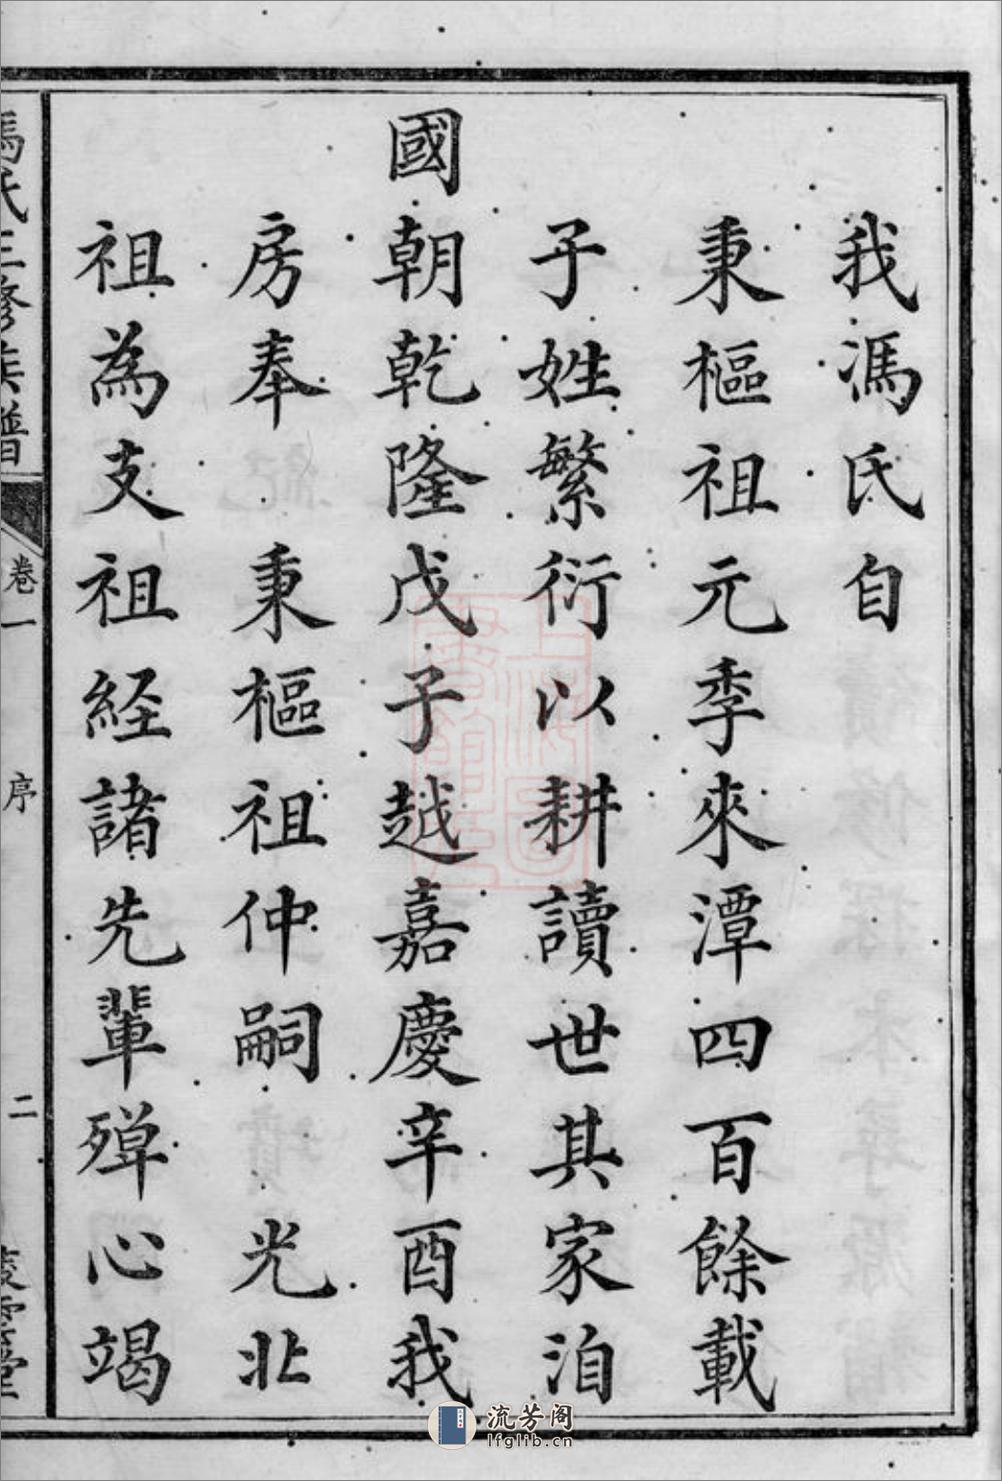 我馮氏自
秉樞祖元季來潭四百餘載
子姓繁衍以耕讀世其家洎
國朝乾隆戊子越嘉慶辛酉我
房奉 秉樞祖仲嗣 光北
祖為支祖経諸先輩殫心竭
馮氏三修族譜 卷一 序 二
流芳阁
lfglib.cn